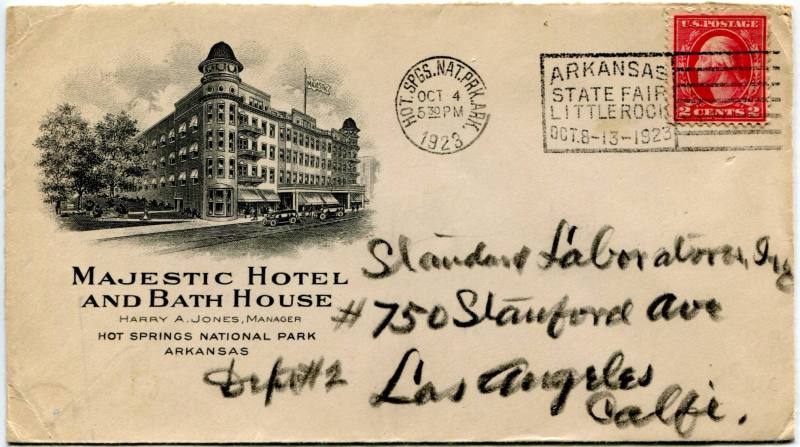 MAJESTIC
HOT. SPGS. NAT. PRK. ARK.
OCT 4
5 30 PM
1923
ARKANSAS
STATE FAIR
LITTLE ROCK
OCT. 8-13-1923
U.S. POSTAGE
2 CENTS 2
MAJESTIC HOTEL
AND BATH HOUSE
HARRY A. JONES, MANAGER
HOT SPRINGS NATIONAL PARK
ARKANSAS
Standard Laboratories, Inc
#750 Stanford Ave
Dept #2
Los Angeles
Calfi.